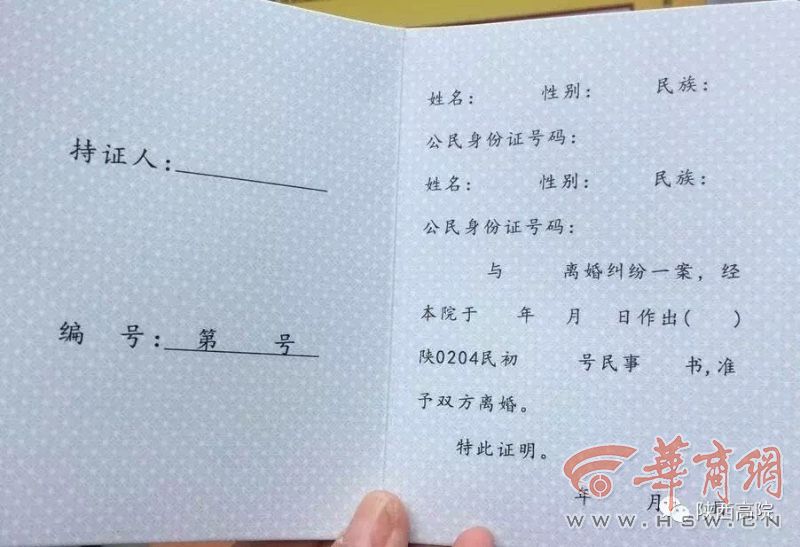 持证人：
编 号：第 号
姓名： 性别： 民族：
公民身份证号码：
姓名： 性别： 民族：
公民身份证号码：
与 离婚纠纷一案，经
本院于 年 月 日作出( )
陕0204民初 号民事 书，准
予双方离婚。
特此证明。
年 月 日
华商網
WWW.HSW.CN
陕西高院